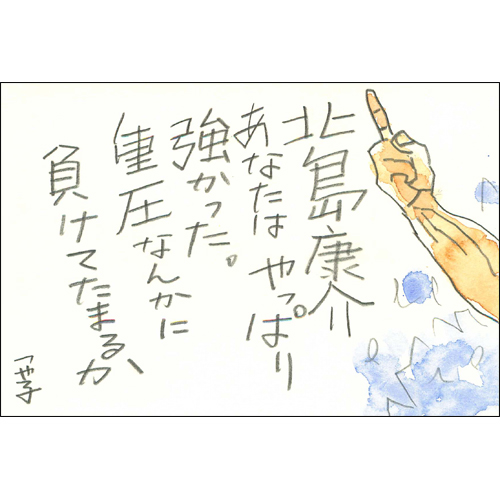 北島康介
あなたは やっぱり
強かった。
重圧なんかに
負けてたまるか
つや子